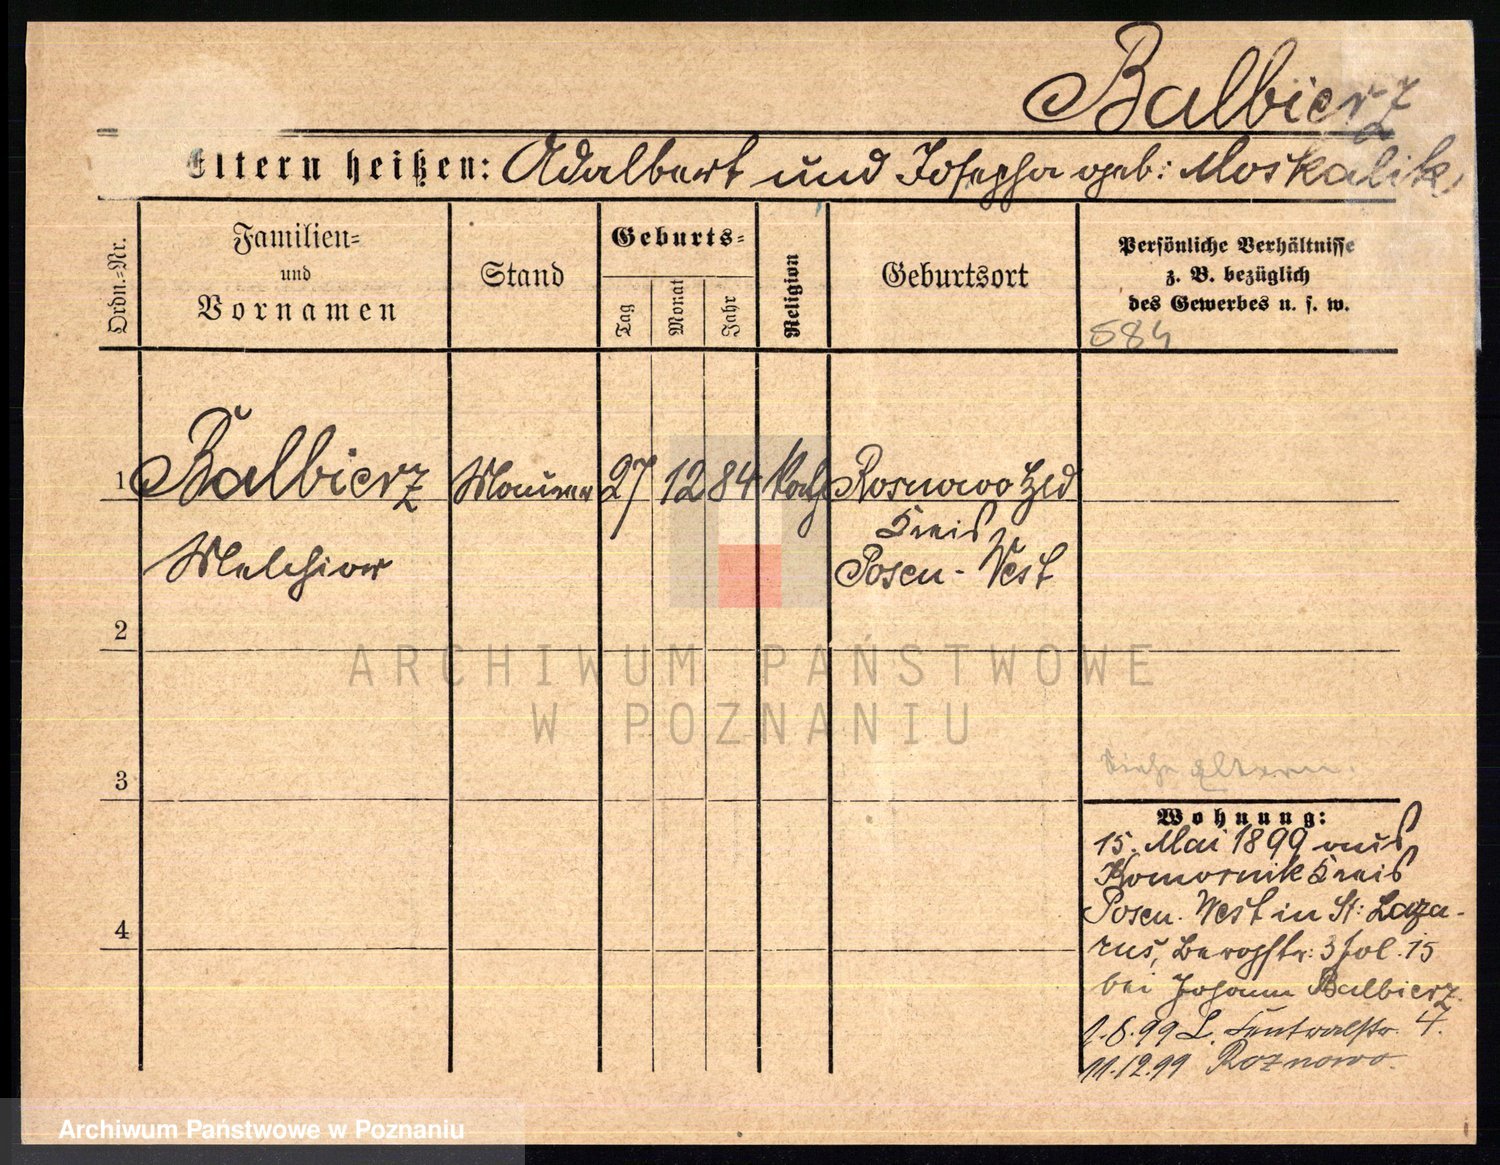 Balbierz
Eltern heißen: Adalbert und Josepha geb: Moskalik
Ordn.=Nr.
Familien=
und
Vornamen
Stand
Geburts=
Tag
Monat
Jahr
Religion
Geburtsort
Persönliche Verhältnisse
z. B. bezüglich
des Gewerbes u. s. w.
584
1 Balbierz Maurer 27 12 84 kath Rosnowo Hld
Kreis
Melchior Posen-West
2
3
siehe Eltern.
Wohnung:
15. Mai 1899 aus
Komornik Kreis
Posen-West in St: Laza-
4
rus, Bergstr: 3 fol. 15
bei Johann Balbierz.
1.8.99 L. Centralstr. 4.
11.12.99 Roznowo.
ARCHIWUM PAŃSTWOWE
W POZNANIU
Archiwum Państwowe w Poznaniu